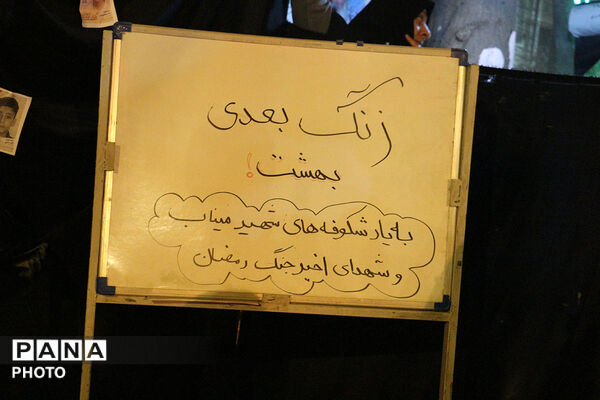 زنگ بعدی
بهشت!
با یاد شکوفه‌های شهید میناب
و شهدای اخیر جنگ رمضان
PANA
PHOTO